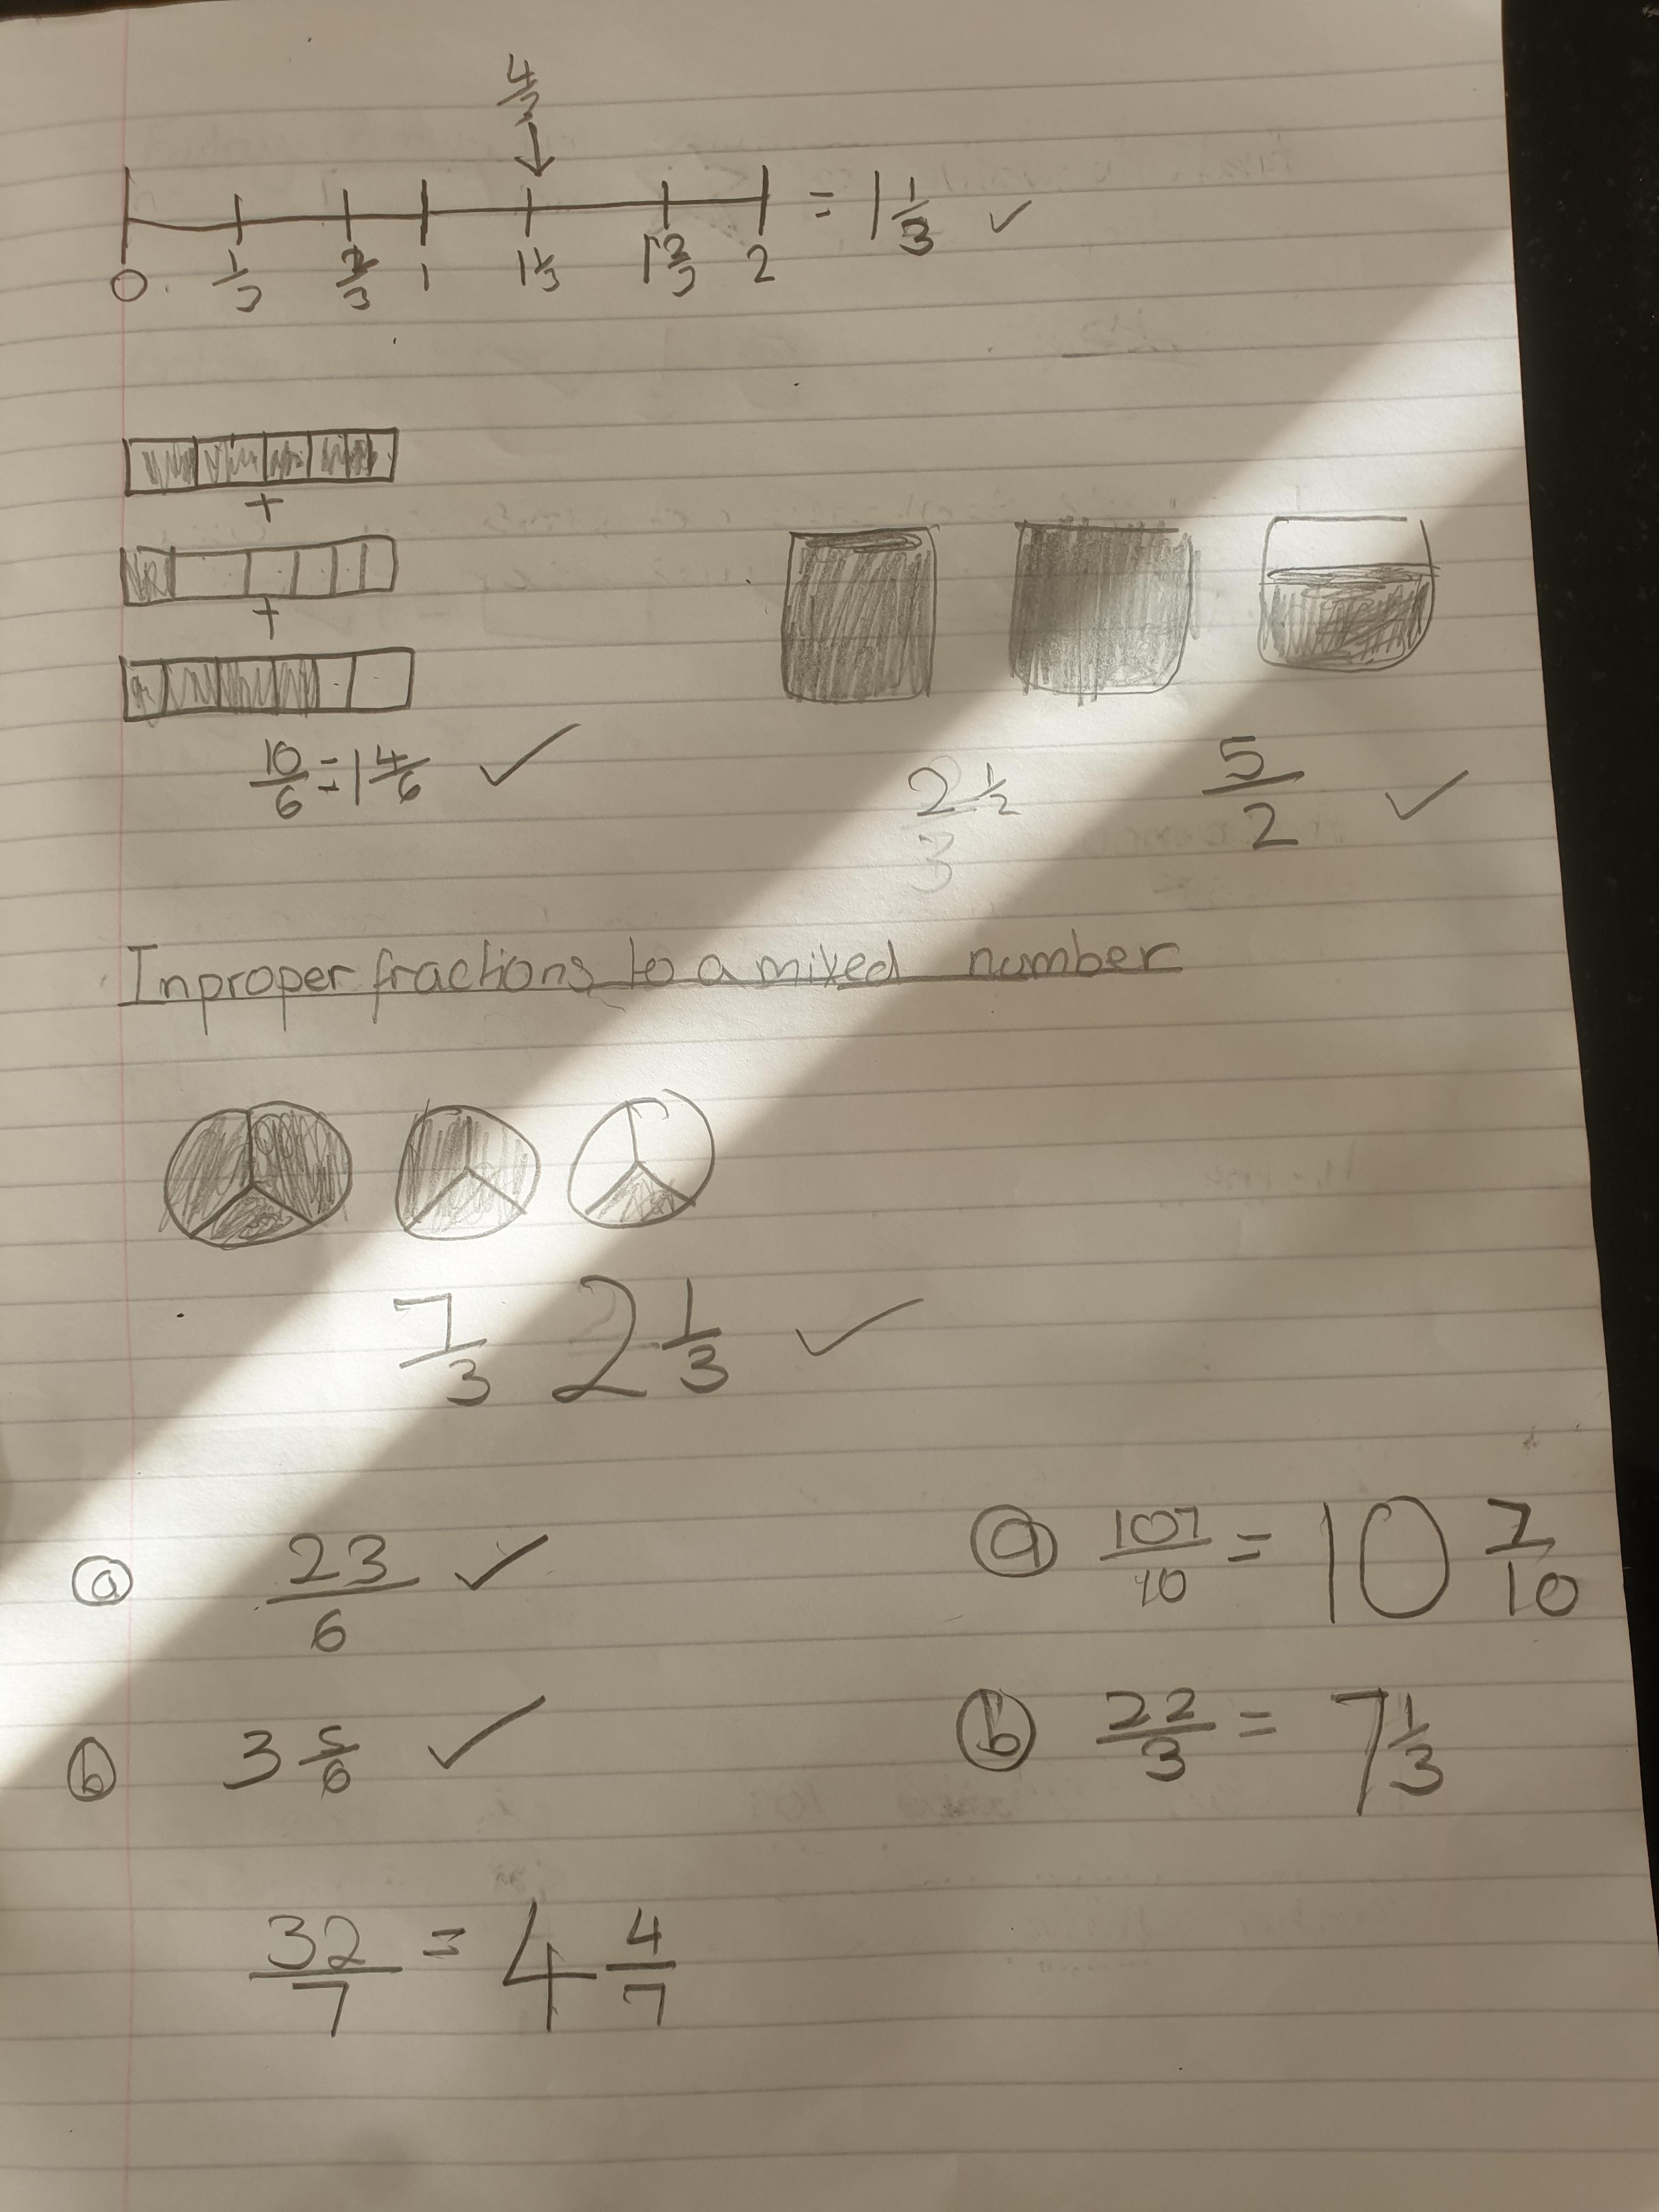 4/3
= 1 1/3 ✓
0 1/3 2/3 1 1 1/3 1 2/3 2
+
+
10/6 = 1 4/6 ✓
2 1/2 5/2 ✓
3
Inproper fractions to a mixed number
7/3 2 1/3 ✓
ⓐ 23/6 ✓
ⓐ 107/10 = 10 7/10
ⓑ 3 5/6 ✓
ⓑ 22/3 = 7 1/3
32/7 = 4 4/7